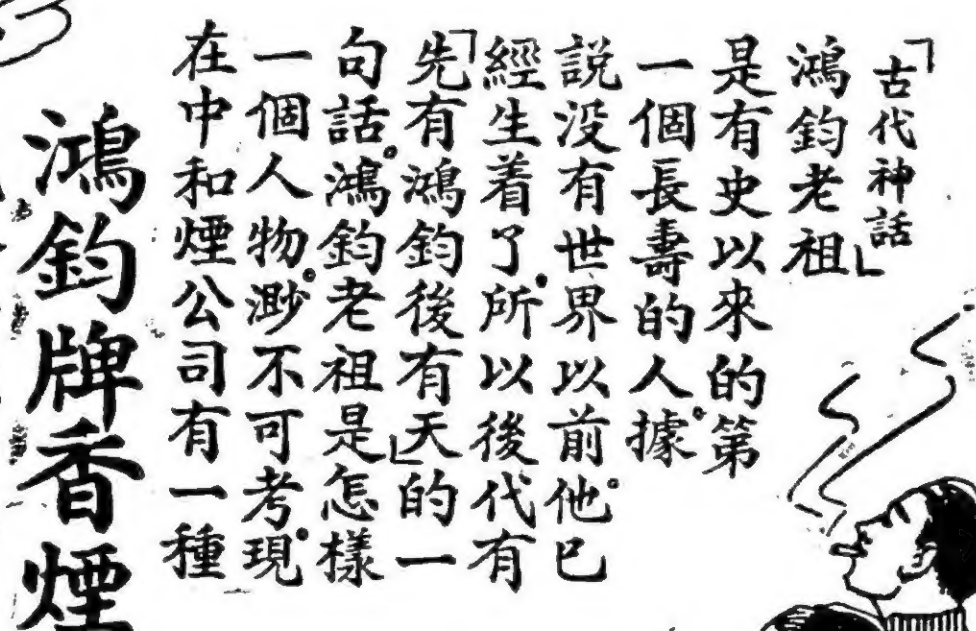 「古代神話
鴻鈞老祖」
是有史以來的第
一個長壽的人。據
説没有世界以前。他已
經生着了。所以後代有
「先有鴻鈞後有天」的一
句話。鴻鈞老祖是怎樣
一個人物。渺不可考。現
在中和煙公司有一種
鴻鈞牌香煙